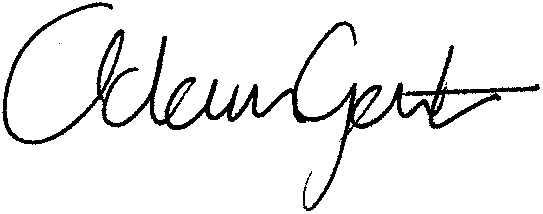 Adam Gent